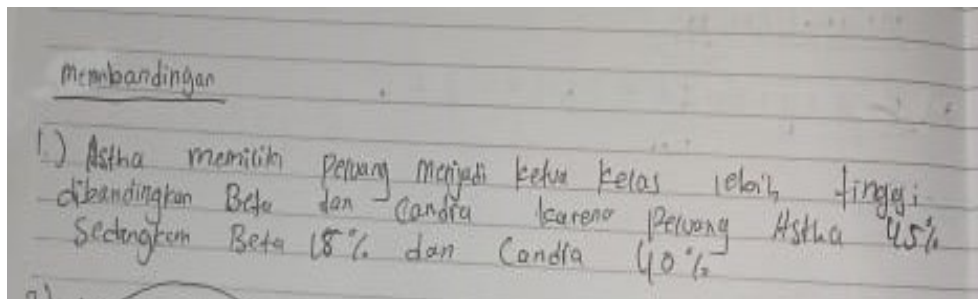 Membandingan
1.) Astha memiliki peluang menjadi ketua kelas lebih tinggi
dibandingkan Beta dan Candra karena peluang Astha 45%
Sedangkan Beta 15% dan Candra 40%
2)